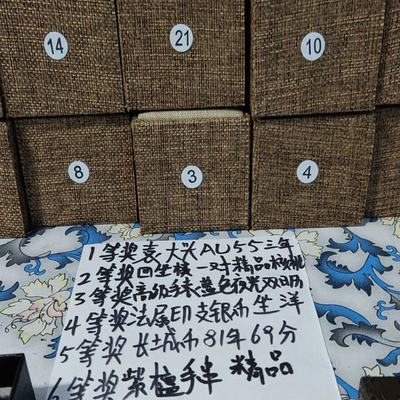 14
21
10
8
3
4
1等奖袁大头AU55三年
2等奖四座楼一对精品核桃
3等奖高级手表蓝色夜光双日历
4等奖法属印支银币坐洋
5等奖长城币81年69分
6等奖紫檀手串精品